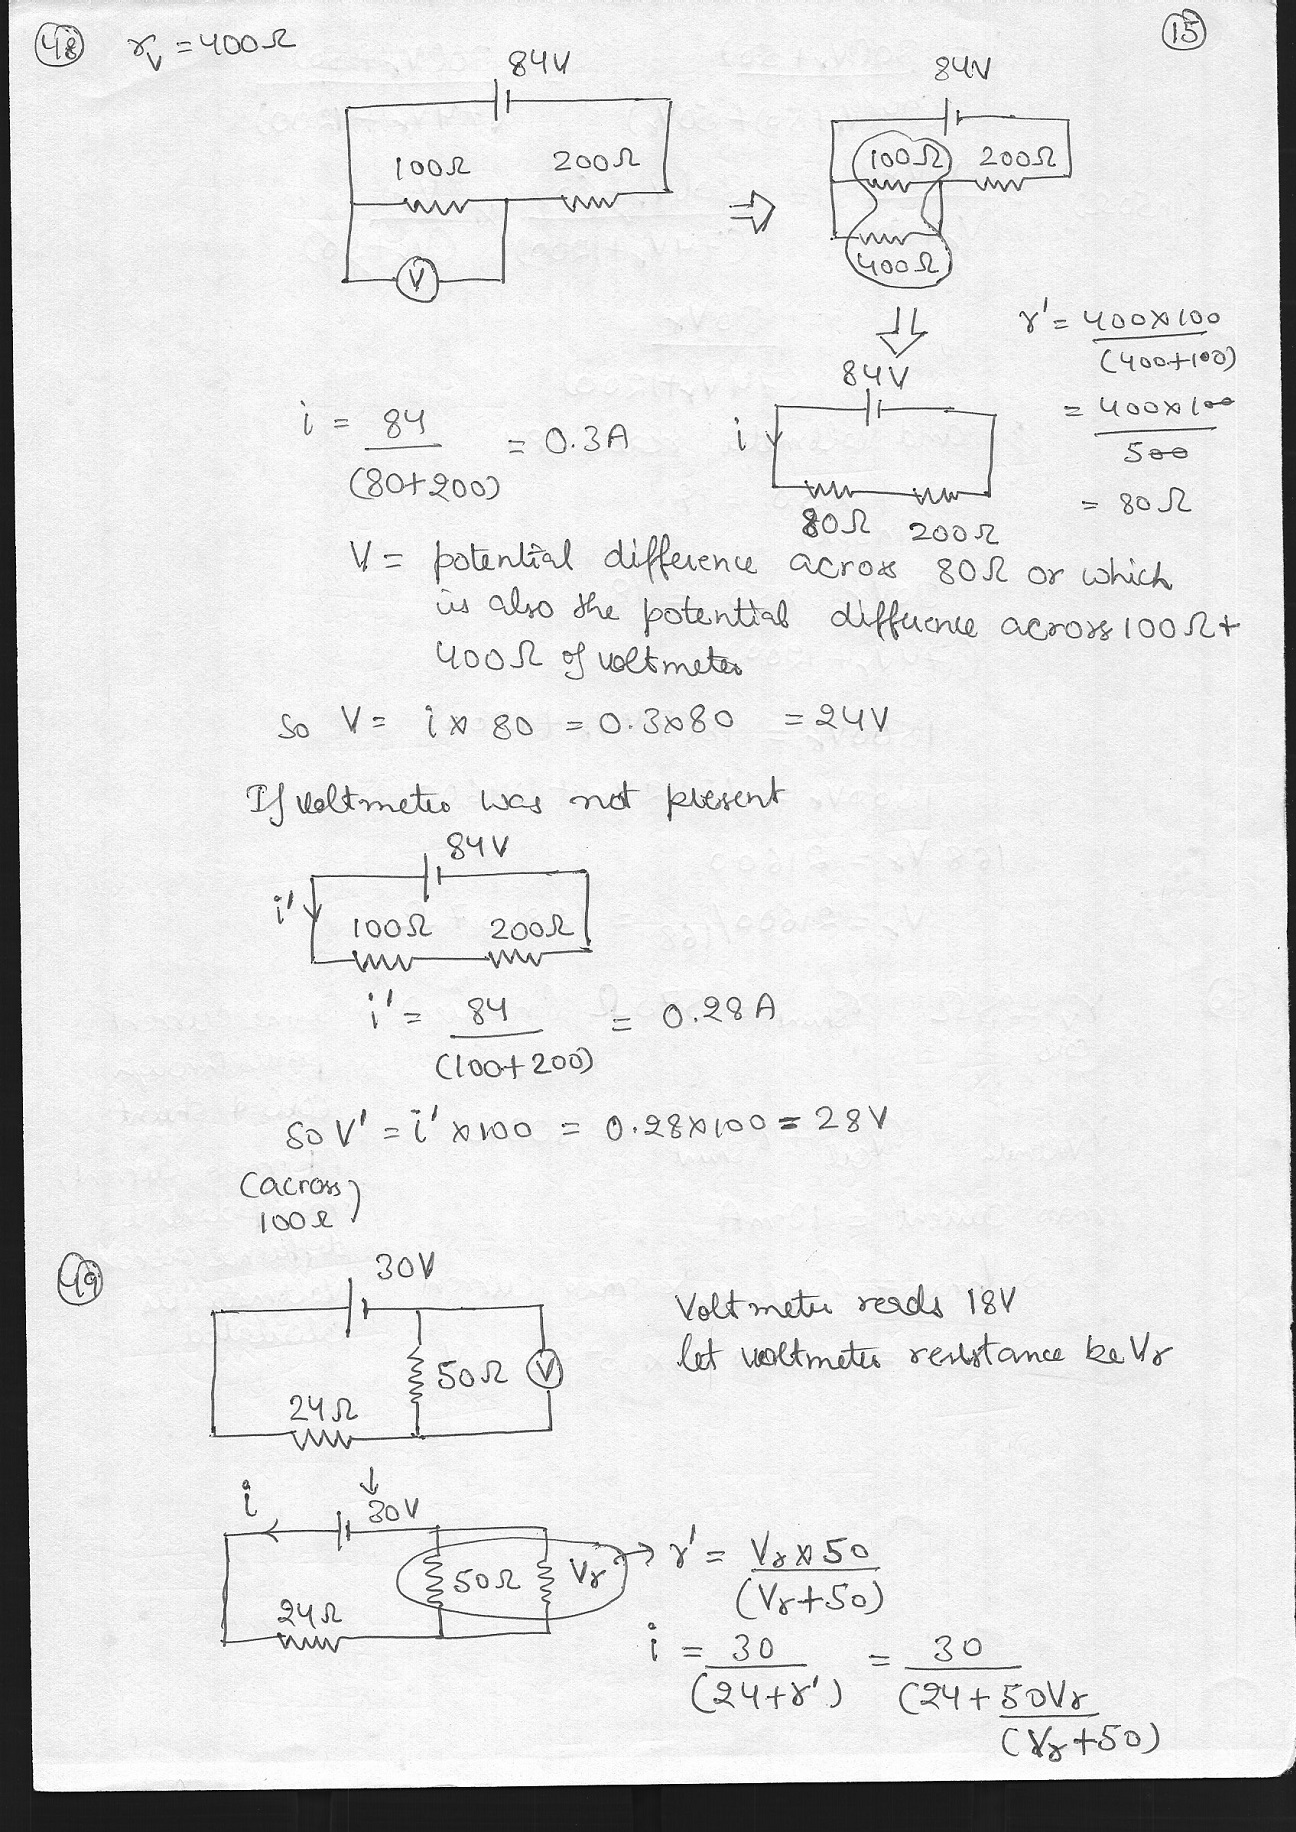 48 r_v = 400Ω
15
84V
100Ω 200Ω
V
⇒
84V
100Ω 200Ω
400Ω
⇓
r' = 400×100
(400+100)
= 400×100
500
= 80Ω
84V
i
80Ω 200Ω
i = 84 = 0.3A
(80+200)
V = potential difference across 80Ω or which
is also the potential difference across 100Ω +
400Ω of voltmeter
so V = i × 80 = 0.3×80 = 24V
If voltmeter was not present
84V
i'
100Ω 200Ω
i' = 84 = 0.28A
(100+200)
so V' = i' ×100 = 0.28×100 = 28V
(across
100Ω)
49
30V
50Ω V
24Ω
Voltmeter reads 18V
let voltmeter resistance be Vr
↓
i
30V
50Ω Vr
24Ω
→ r' = Vr × 50
(Vr+50)
i = 30 = 30
(24+r') (24+ 50Vr
(Vr+50)